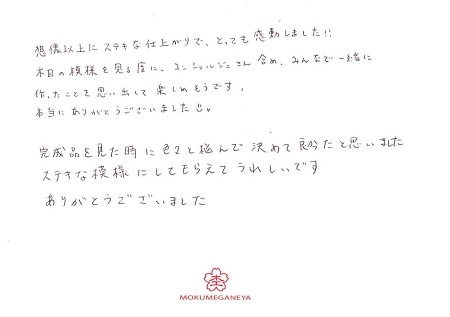 想像以上にステキな仕上がりで、とっても感動しました!!
木目の模様を見る度に、コンシェルジュさん含め、みんなで一緒に
作ったことを思い出して楽しめそうです。
本当にありがとうございました
完成品を見た時に色々と悩んで決めて良かったと思いました
ステキな模様にしてもらえてうれしいです
ありがとうございました
MOKUMEGANEYA